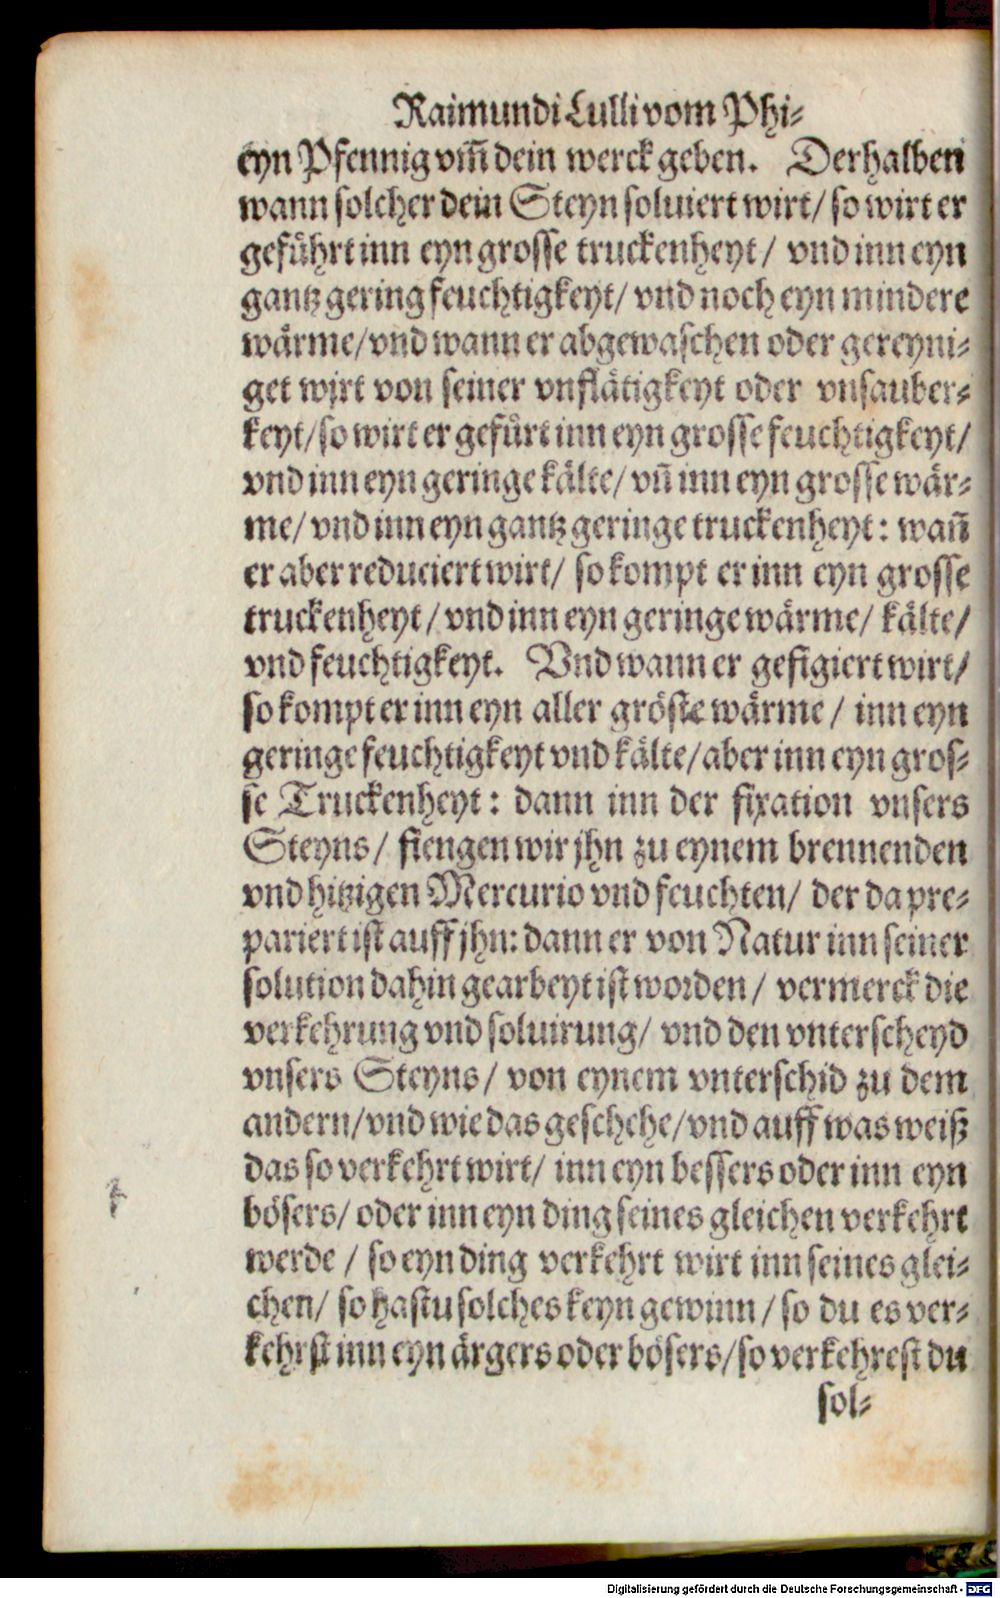 Raimundi Lulli vom Phi⸗
eyn Pfennig vm̃ dein werck geben. Derhalben
wann solcher dein Steyn soluiert wirt/ so wirt er
gefůhrt inn eyn grosse truckenheyt/ vnd inn eyn
gantz gering feuchtigkeyt/ vnd noch eyn mindere
wärme/ vnd wann er abgewaschen oder gereyni⸗
get wirt von seiner vnflätigkeyt oder vnsauber⸗
keyt/ so wirt er gefůrt inn eyn grosse feuchtigkeyt/
vnd inn eyn geringe kälte/ vñ inn eyn grosse wär⸗
me/ vnd inn eyn gantz geringe truckenheyt: wañ
er aber reduciert wirt/ so kompt er inn eyn grosse
truckenheyt/ vnd inn eyn geringe wärme/ kälte/
vnd feuchtigkeyt. Vnd wann er gefigiert wirt/
so kompt er inn eyn aller gröste wärme/ inn eyn
geringe feuchtigkeyt vnd kälte/ aber inn eyn gros⸗
se Truckenheyt: dann inn der fixation vnsers
Steyns/ fiengen wir jhn zu eynem brennenden
vnd hitzigen Mercurio vnd feuchten/ der da pre⸗
pariert ist auff jhn: dann er von Natur inn seiner
solution dahin gearbeyt ist worden/ vermerck die
verkehrung vnd soluirung/ vnd den vnterscheyd
vnsers Steyns/ von eynem vnterschid zu dem
andern/ vnd wie das geschehe/ vnd auff was weiß
das so verkehrt wirt/ inn eyn bessers oder inn eyn
bösers/ oder inn eyn ding seines gleichen verkehrt
werde/ so eyn ding verkehrt wirt inn seines glei⸗
chen/ so hastu solches keyn gewinn/ so du es ver⸗
kehrst inn eyn ärgers oder bösers/ so verkehrest du
sol⸗
Digitalisierung gefördert durch die Deutsche Forschungsgemeinschaft - DFG